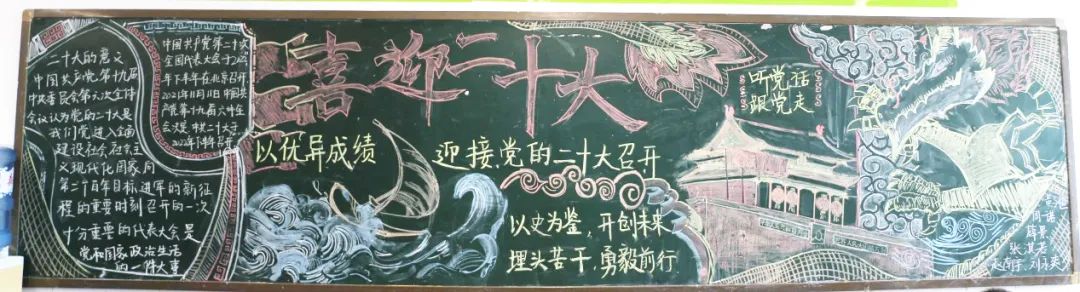 喜迎二十大
二十大的意义
中国共产党第十九届
中央委员会第六次全体
会议认为党的二十大是
我们党进入全面
建设社会主
义现代化国家向
第二个百年目标进军的新征
程的重要时刻召开的一次
十分重要的代表大会是
党和国家政治生活
的一件大事
中国共产党第二十次
全国代表大会于2022
年下半年在北京召开
2021年11月11日中国共
产党第十九届六中全
会决定中共二十大于
2022年下半年召开
以优异成绩
迎接党的二十大召开
以史为鉴,开创未来
埋头苦干,勇毅前行
听党话
跟党走